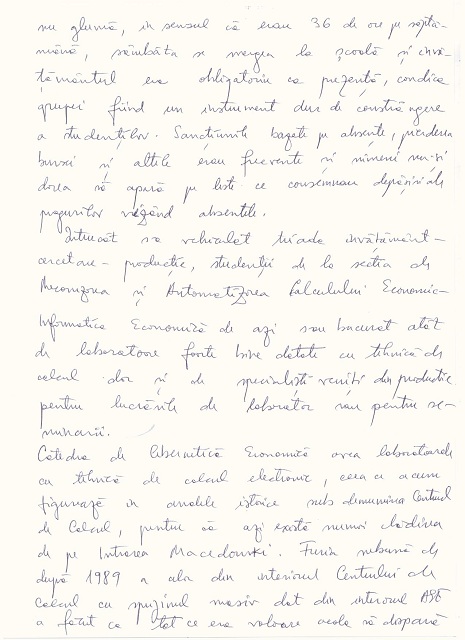 nu glumă, în sensul că erau 36 de ore pe săptă-
mână, sâmbăta se mergea la școală și învă-
țământul era obligatoriu ca prezență, condica
grupei fiind un instrument dur de constrângere
a studenților. Sancțiunile bazate pe absențe, pierderea
bursei și altele erau frecvente și nimeni nu-și
dorea să apară pe liste ce consemnau depășirile
pragurilor vizând absențele.
Întrucât se vehiculat triada învățământ-
cercetare - producție, studenții de la secția de
Mecanizarea și Automatizarea Calculului Economic-
Informatica Economică de azi s-au bucurat atât
de laboratoare foarte bine dotate cu tehnică de
calcul dar și de specialiști veniți din producție
pentru lucrările de laborator sau pentru se-
minarii.
Catedra de Cibernetică Economică avea laboratoarele
cu tehnică de calcul electronic, ceea ce acum
figurează în analele istorice sub denumirea Centrul
de Calcul, pentru că azi există numai clădirea
de pe Intrarea Macedonski. Furia nebună de
după 1989 a celor din interiorul Centrului de
Calcul cu sprijinul masiv dat din interiorul ASE
a făcut ca tot ce era valoare acolo să dispară